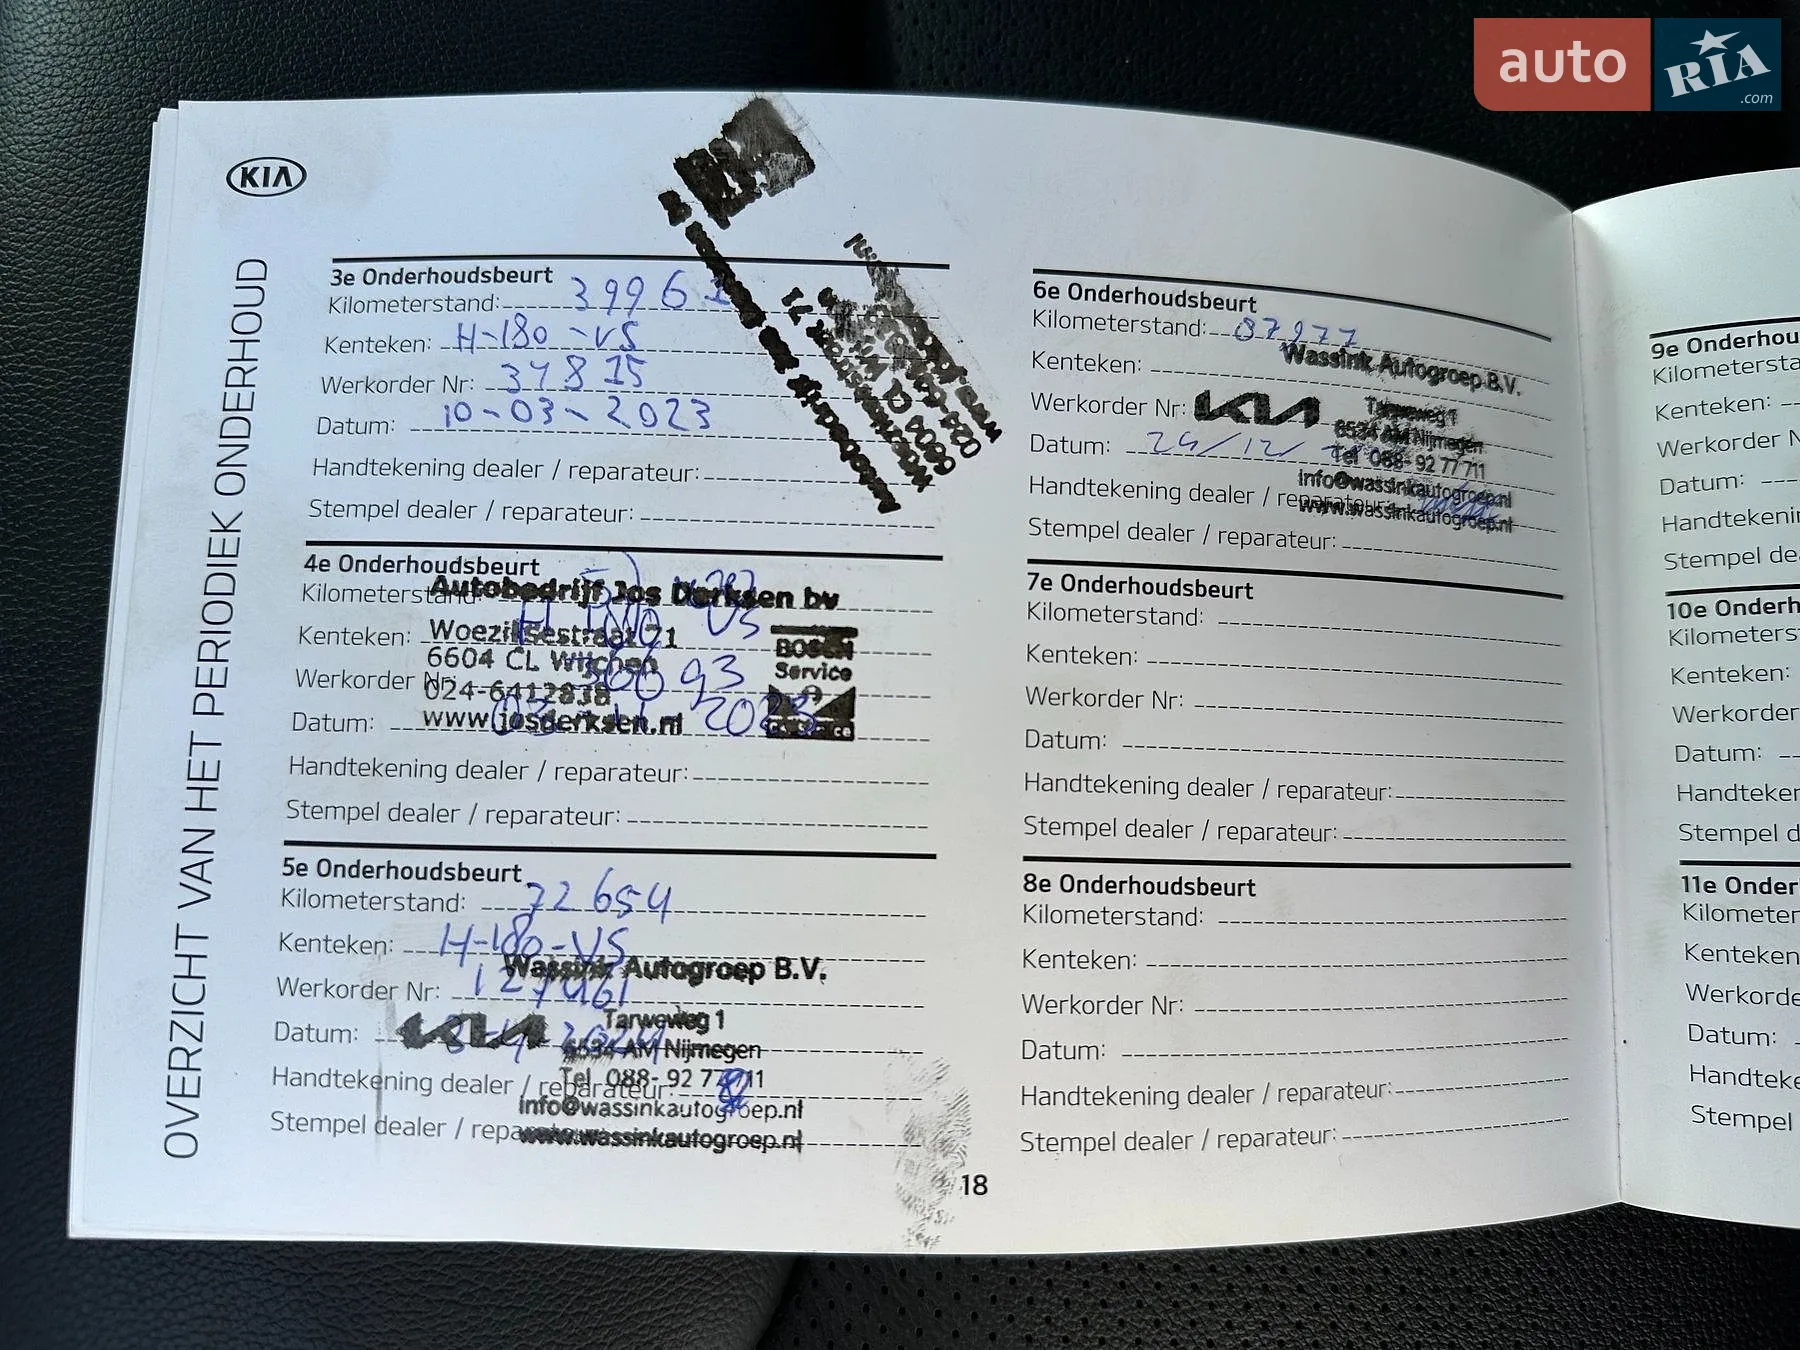 auto RIA.com
KIA
OVERZICHT VAN HET PERIODIEK ONDERHOUD
3e Onderhoudsbeurt
Kilometerstand: 39961
Kenteken: H-180-VS
Werkorder Nr: 34815
Datum: 10-03-2023
Handtekening dealer / reparateur:
Stempel dealer / reparateur:
4e Onderhoudsbeurt
Kilometerstand:
Autobedrijf Jos Derksen bv
Kenteken: H-180-VS
Woeziksestraat 71
6604 CL Wijchen
BOSCH
Service
Werkorder Nr:
024-6412838
Datum: 2023
www.josderksen.nl
Handtekening dealer / reparateur:
Stempel dealer / reparateur:
5e Onderhoudsbeurt
Kilometerstand: 72654
Kenteken: H-180-VS
Wassink Autogroep B.V.
Werkorder Nr:
KIA
Tarweweg 1
Datum: 2024
6534 AM Nijmegen
Handtekening dealer / reparateur:
Tel 088-92 77 711
info@wassinkautogroep.nl
Stempel dealer / reparateur:
www.wassinkautogroep.nl
18
6e Onderhoudsbeurt
Kilometerstand: 87977
Wassink Autogroep B.V.
Kenteken:
Werkorder Nr:
KIA
Tarweweg 1
6534 AM Nijmegen
Datum: 24/12/
Tel 088-92 77 711
Handtekening dealer / reparateur:
info@wassinkautogroep.nl
www.wassinkautogroep.nl
Stempel dealer / reparateur:
7e Onderhoudsbeurt
Kilometerstand:
Kenteken:
Werkorder Nr:
Datum:
Handtekening dealer / reparateur:
Stempel dealer / reparateur:
8e Onderhoudsbeurt
Kilometerstand:
Kenteken:
Werkorder Nr:
Datum:
Handtekening dealer / reparateur:
Stempel dealer / reparateur:
9e Onderhou
Kilometersta
Kenteken:
Werkorder N
Datum:
Handtekenin
Stempel dea
10e Onderh
Kilometerst
Kenteken:
Werkorder
Datum:
Handteker
Stempel d
11e Onder
Kilometer
Kenteken
Werkorde
Datum:
Handteke
Stempel